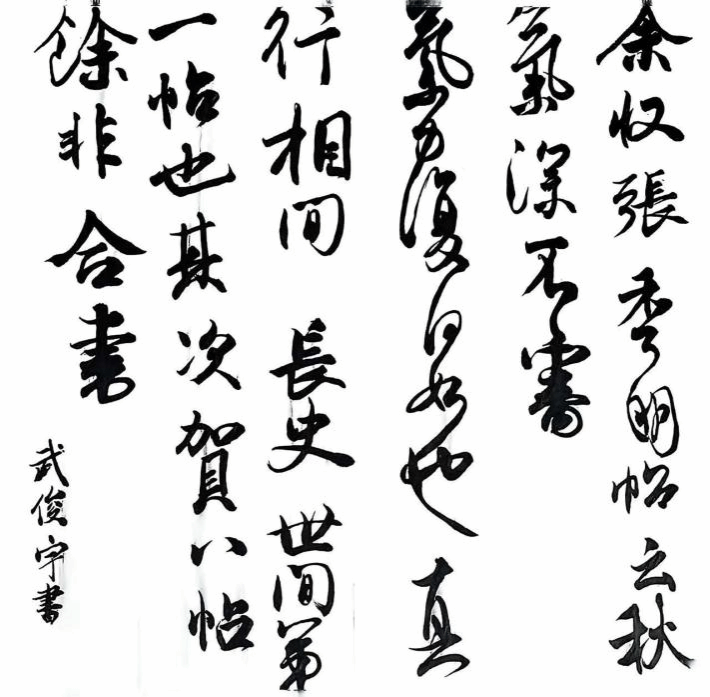 余収張季明帖云秋
氣深不審
氣力復何如也真
行相間長史世間第
一帖也其次賀八帖
餘非合書
武俊宇書